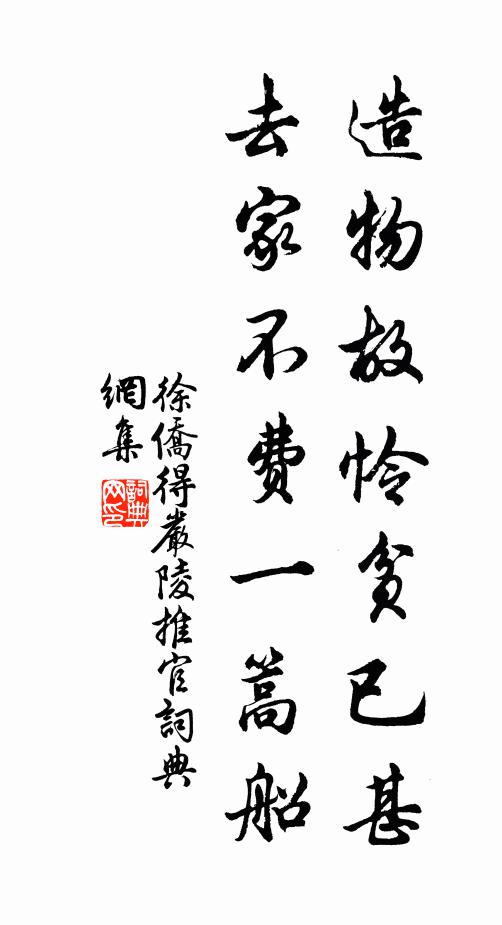 造物故怜貧已甚
去家不費一蒿船
徐僑得嚴陵推官詞典
網集
詞典
网印